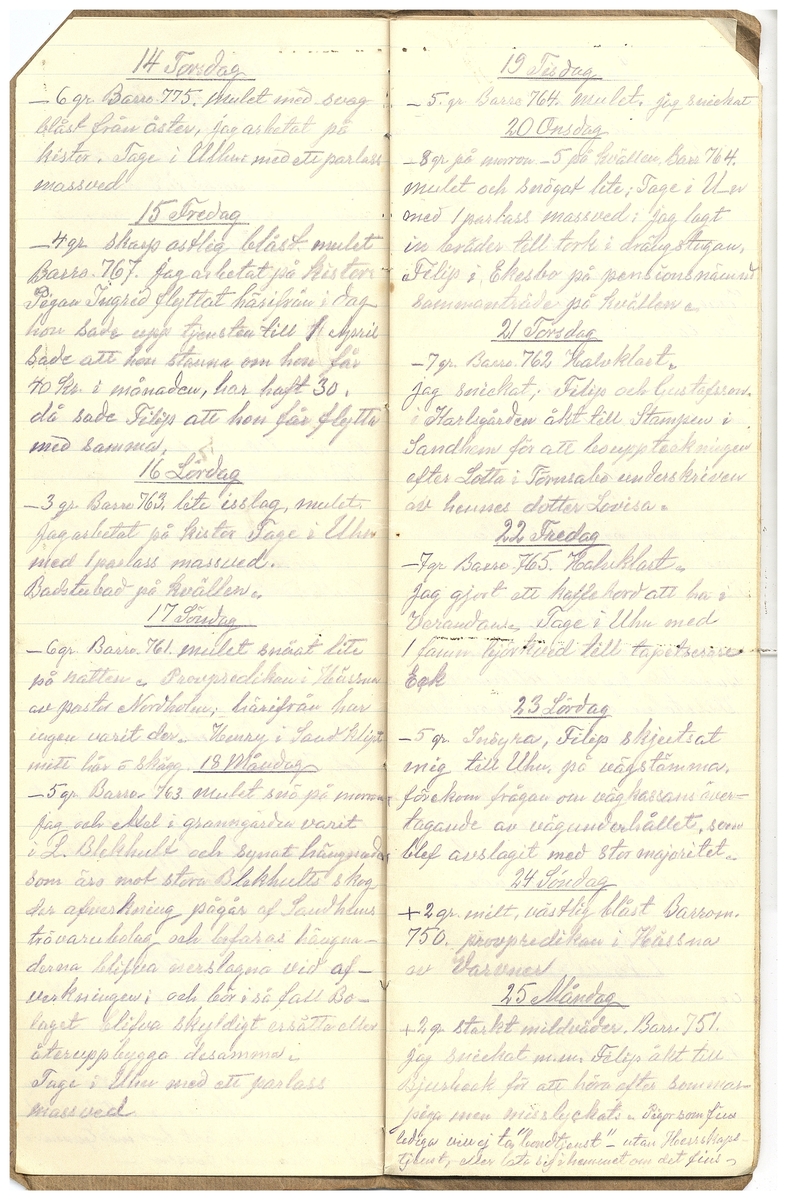 14 Torsdag
- 6 gr. Barro. 775. mulet med svag
blåst från öster, jag arbetat på
kistor. Tage i Uhn med ett parlass
massved
15 Fredag
- 4 gr. skarp ostlig blåst. mulet
Barro. 767. jag arbetat på kistor
Pigan Ingrid flyttat härifrån i dag
hon sade upp tjensten till 1 April
sade att hon stanna om hon får
40 Kr. i månaden, har haft 30.
då sade Filip att hon får flytta
med samma.
16 Lördag
- 3 gr. Barro 763. lite isslag, mulet.
jag arbetat på kistor Tage i Uhn
med 1 parlass massved.
Badstubad på kvällen.
17 Söndag
- 6 gr. Barro. 761. mulet snöat lite
på natten. Provpredikan i Hässna
av pastor Nordholm; härifrån har
ingen varit der. Henry i Sand klipt
mitt hår o skägg. 18 Måndag
- 5 gr. Barro. 763. mulet snö på morron
jag och Axel i granngården varit
i L. Blekhult och synat hängnader
som äro mot stora Blekhults skog
der afverkning pågår af Sandhems
trävarubolag och befaras hängna-
derna blifva nerslagna vid af-
verkningen; och bör i så fall Bo-
laget blifva skyldigt ersätta eller
återuppbygga desamma.
Tage i Uhn med ett parlass
massved
19 Tisdag
- 5. gr Barro 764. mulet. jag snickat
20 Onsdag
- 8 gr på morron - 5 på kvällen, Barr 764.
mulet och snögat lite; Tage i U-n
med 1 parlass massved; jag lagt
in bräder till tork i drängstugan,
Filip i Ekesbo på pensionsnämd
sammanträde på kvällen.
21 Torsdag
- 7 gr. Barro. 762 Halvklart.
jag snickat; Filip och Gustafsson
i Karlsgården åkt till Stampen i
Sandhem för att bouppteckningen
efter Lotta i Tornsabo underskriven
av hennes dotter Lovisa.
22 Fredag
- 7 gr Barro. 765. Halvklart.
jag gjort ett kaffebord att ha i
Verandan. Tage i Uhn med
1 famn björkved till tapetserare
Eek
23 Lördag
- 5 gr. Filip skjutsat
mig till Uhn. på vägstämma.
förekom frågan om vägkassans över-
tagande av vägunderhållet, som
blef avslagit med stor majoritet.
24 Söndag
+ 2 gr. mitt, västlig blåst Barrom.
750. provpredikan i Hässna
av Varvner
25 Måndag
+ 2 gr starkt mildväder. Barr. 751.
jag snickat m.m. Filip åkt till
Bjurbeck för att höra efter sommar-
piga men misslyckats. Pigor som fins
lediga vill ej ta "bondtjenst" - utan Herrskaps-
tjenst, eller i hemmet om det fins -